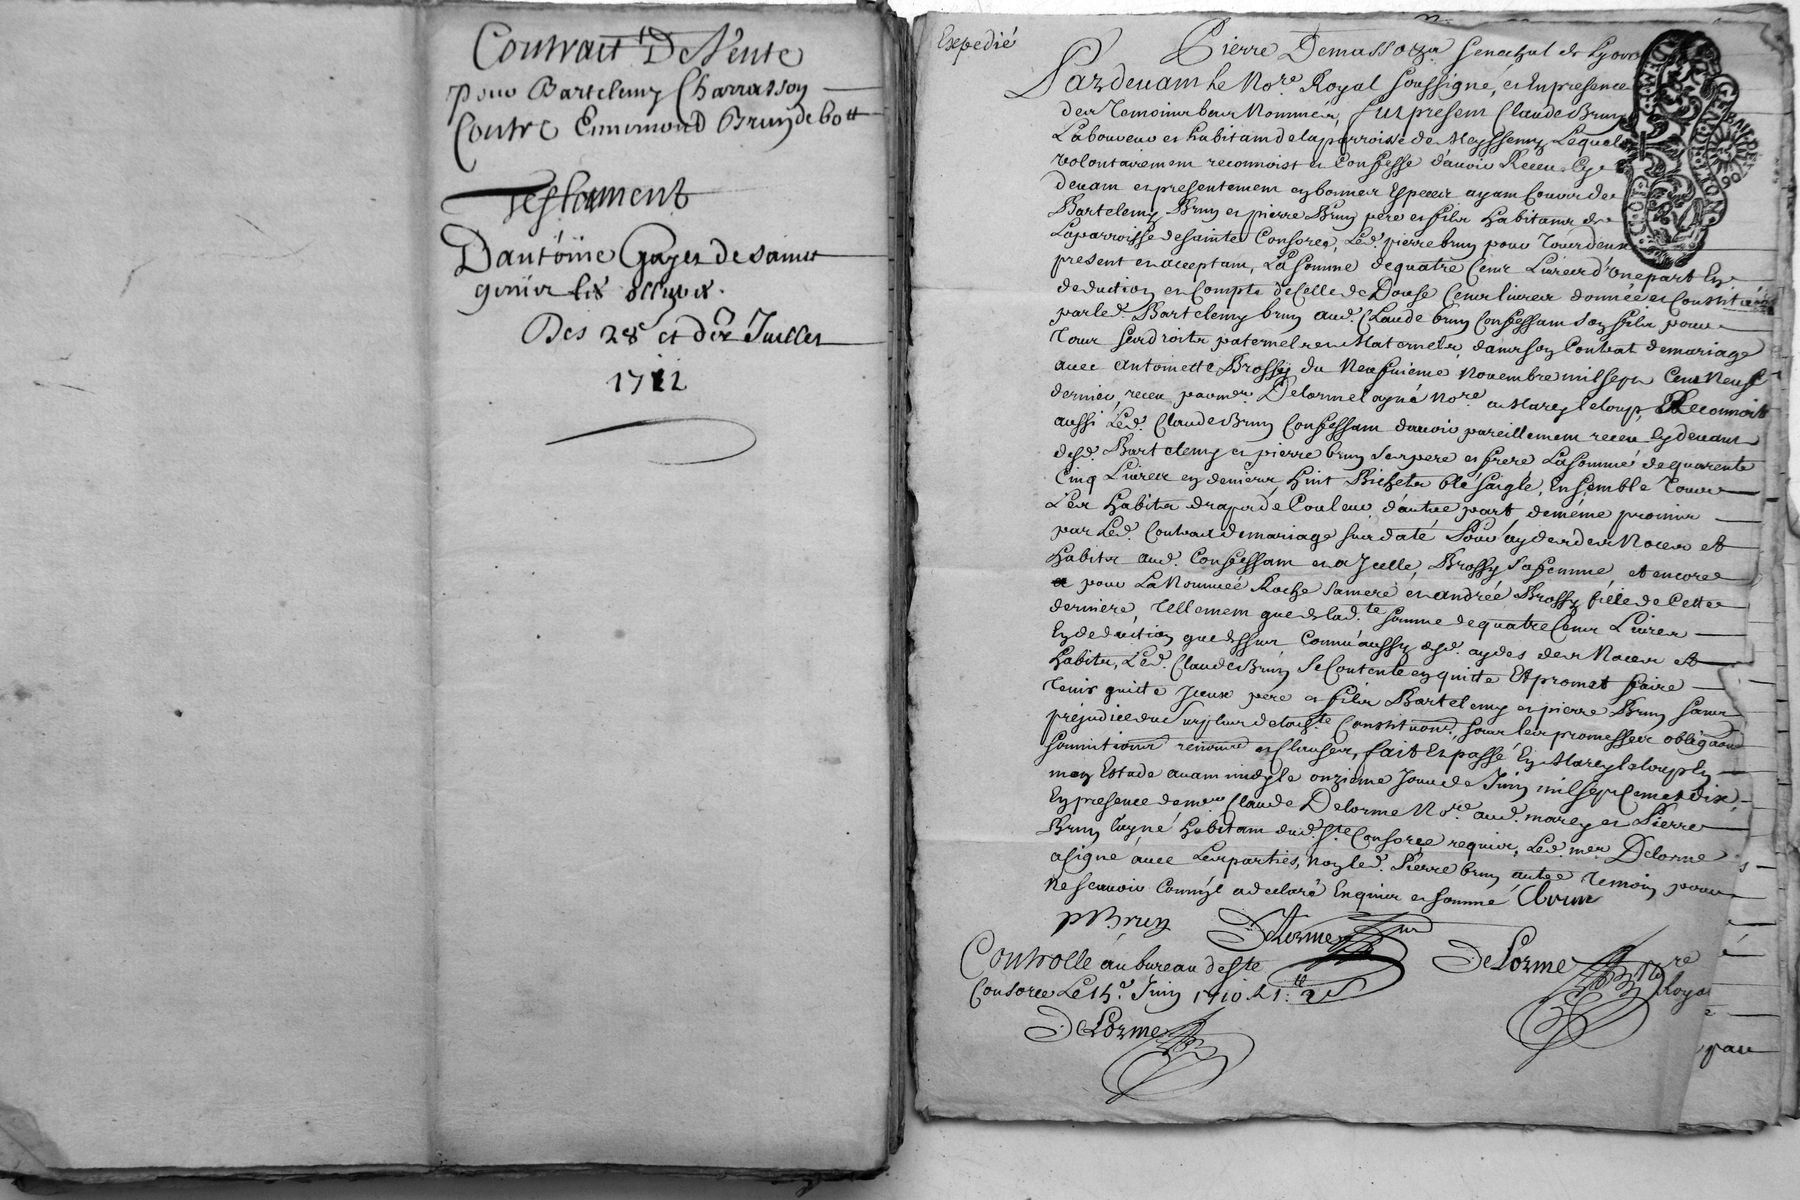 Contrait De Vente
pour Bartelemy Charrasson
Contre Ennemond Brun de bott
Testament
D'antoine Gayet de sainct
genier les ollier
Des 28e et der Juillet
1712
Expedié
Pierre Demassotza Senechal de Lyon
Pardevant le Nore Royal soussigné, et en presence
des Temoins bas Nommés, fut present Claude Brun
Laboureur et habitant de la parroisse de Meyssemy Lequel
volontairement reconnoist et Confesse d'avoir Receu Cy
devant et presentement en bonnes Especes ayant Cours de
Bartelemy Brun et pierre Brun pere et fils habitants de
La parroisse de sainte Consorce, Led. pierre brun pour Tous deux
present et acceptant, La Somme de quatre Cent Livres d'une part En
deduction et Compte de Celle de Douse Cent livres donnée et Constituée
par led. Bartelemy brun aud. Claude brun Confessant son fils pour
Tous ses droits paternels et Maternels, dans son Contrat de mariage
avec antoinette Brossy du Neufvieme Novembre mil sept Cent Neuf
dernier, receu par mer. Delorme l'ayné Nore. a Marcy le loup, Reconnoit
aussi Led. Claude Brun Confessant d'avoir pareillement receu Cy devant
desd. Bartelemy et pierre brun ses pere et frere La somme de quarente
Cinq Livres en deniers, huit Bichets blé seigle, Ensemble Tous
Les habits drapts de Couleur d'autre part de méme promis
par Led. Contrat de mariage sus daté Pour aydes des Noces et
habits aud. Confessant et a Jcelle, Brossy sa femme, et encore
pour La Nommée Roche sa mere et andrée Brossy fille de Cette
derniere, Tellement que de lad.te somme de quatre Cent Livres
En deduction que dessus Comme aussy desd. aydes des Noces et
habits, Led. Claude Brun Se Contente en quitte Et promet faire
Tenir quitte Jceux pere et fils Bartelemy et pierre Brun sans
préjudice du Surplus de lad.te Constitution, sous les promesses obligaons
soumitions renons et Clauses, fait Et passé En Marcy le loup En
mon Estude avant midy le onzieme Jour de Juin mil sept Cent et dix,
En presence de mer Claude Delorme Nore. aud. marcy et Pierre
Brun l'ayné habitant dud. Ste Consorce requis, Led. mer Delorme
a signé avec Les parties, Non led. Pierre brun autre Temoin pour
ne scavoir Comm'jl a declaré Enquis et sommé C brun
P Brun
Delorme
DeLorme Nre
Royal
Controllé au bureau de Ste
Consorce Le 14e Juin 1710
DeLorme